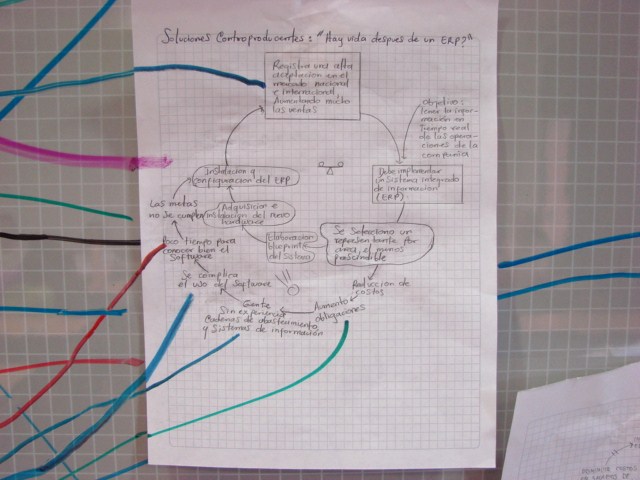 Soluciones Contraproducentes: "Hay vida despues de un ERP?"
Registra una alta
aceptacion en el
mercado nacional
e Internacional,
Aumentando mucho
las ventas
Objetivo:
tener la infor-
mación en
tiempo real
de las opera-
ciones de la
compañia
Debe implementar
un Sistema integrado
de información
(ERP)
Se Selecciona un
representante por
area, el menos
prescindible
Reduccion de
costos
Aumento
obligaciones
Gente
Sin experiencia
Cadenas de abastecimiento
y Sistemas de información
Se complica
el uso del Software
Poco tiempo para
conocer bien el
Software
Las metas
no se cumplen
Instalacion y
configuracion del ERP
Adquisicion e
instalacion del nuevo
hardware
Elaboracion
blueprint
del sistema